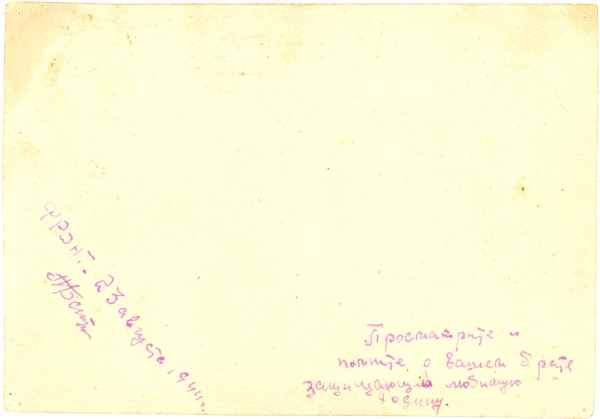 ФРОНТ. 23 августа 1944 г.
Просмотрите и
помните о вашем брате
защищающий любимую
Родину.